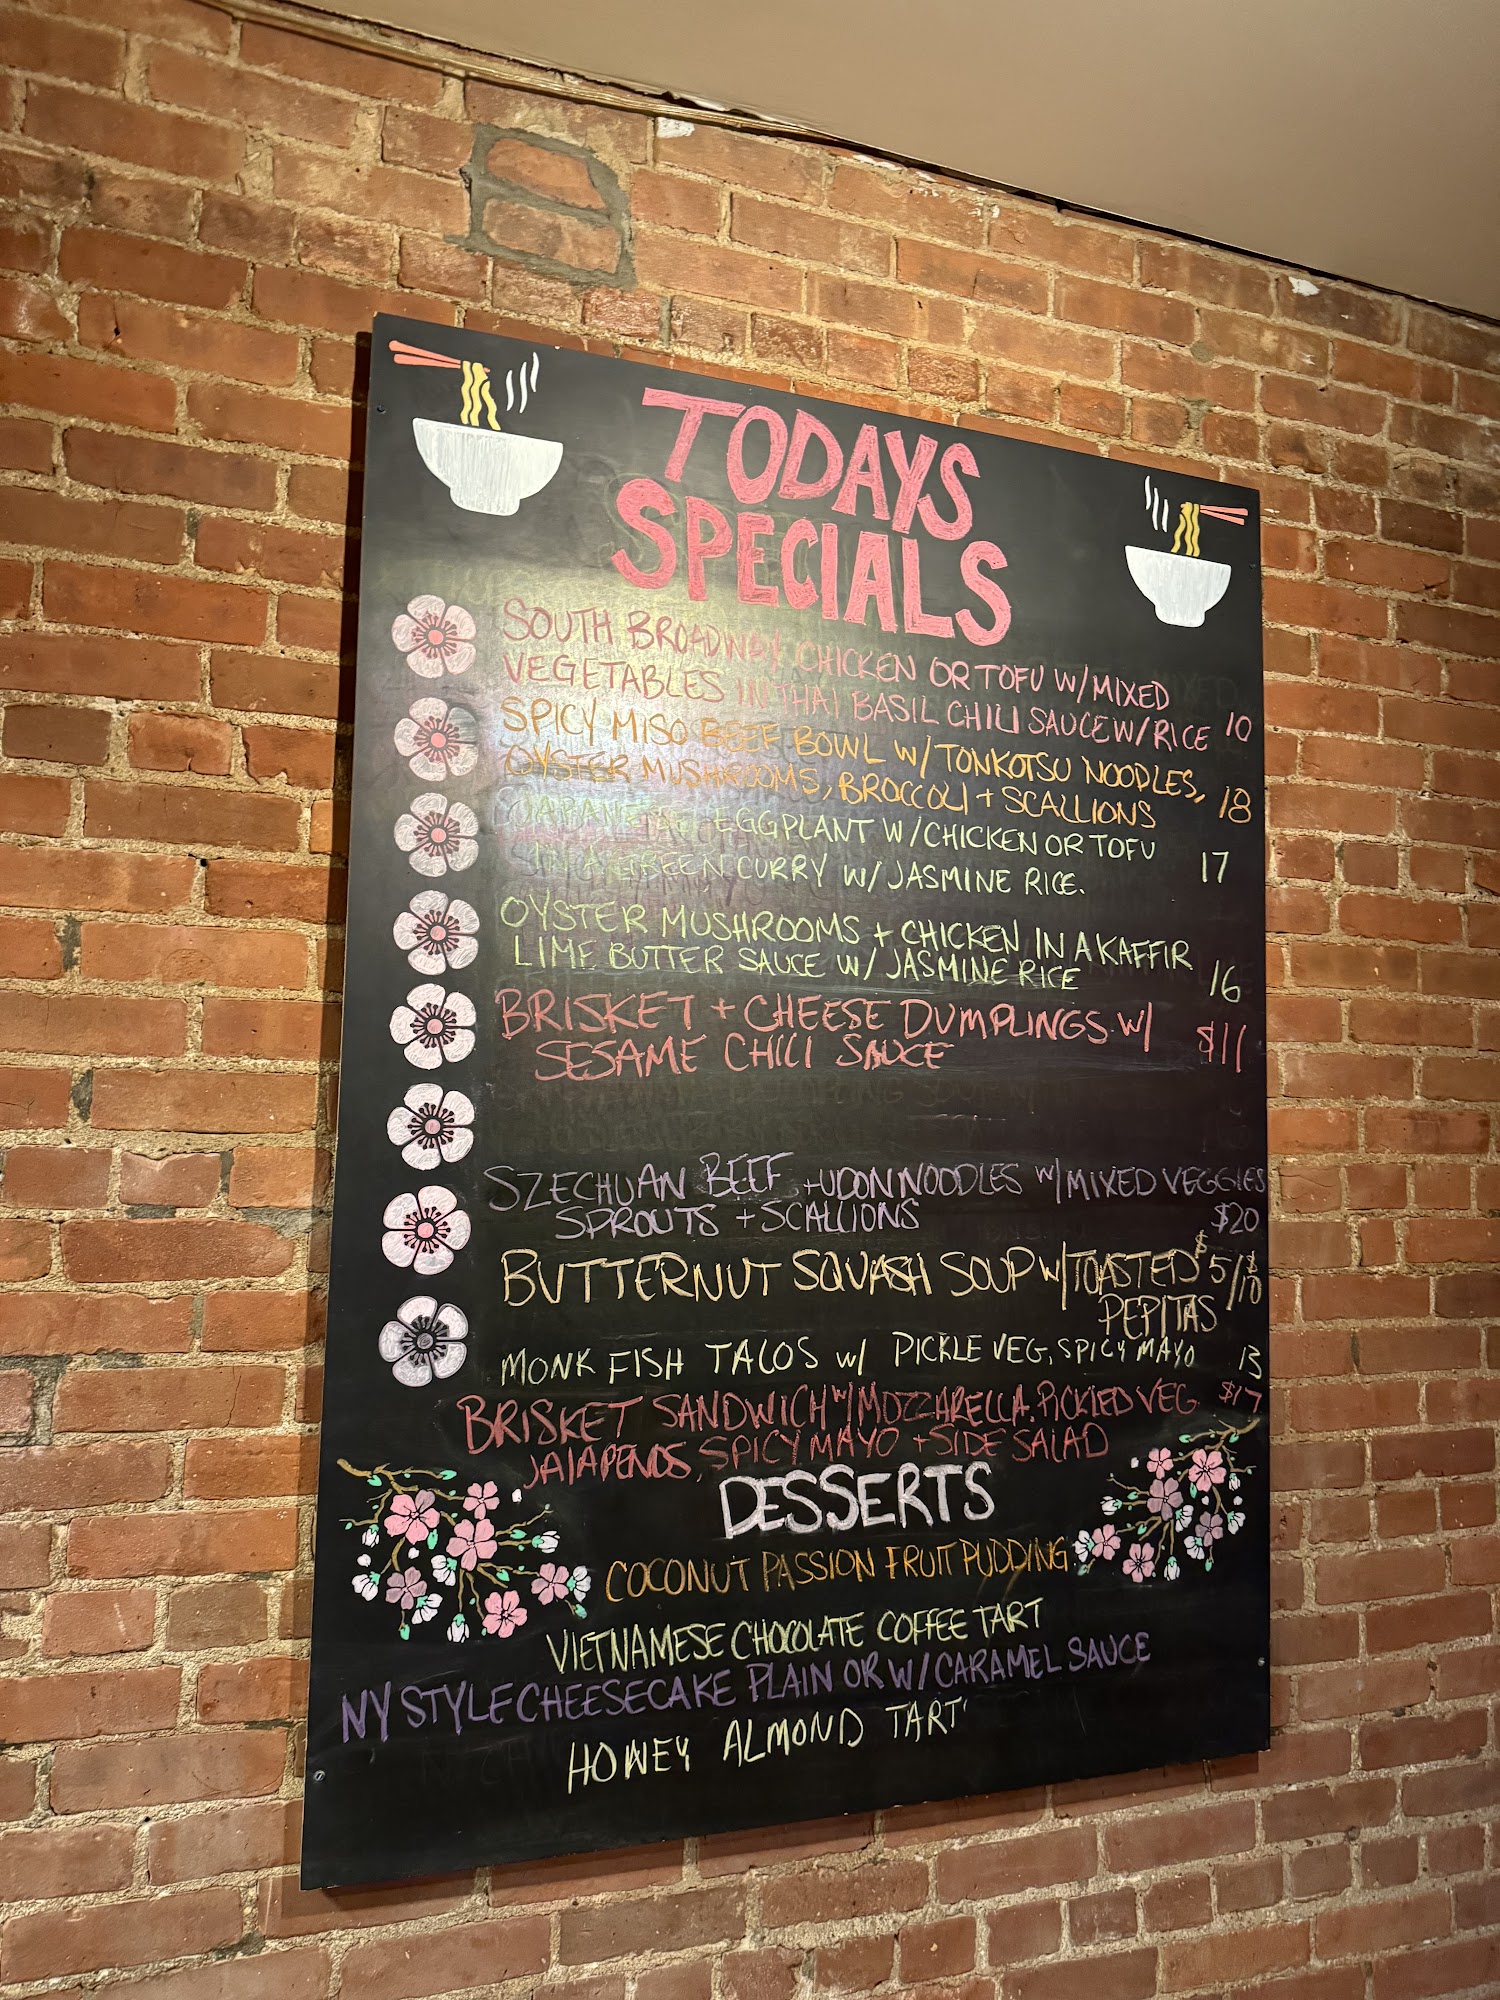 TODAYS
SPECIALS
SOUTH BROADWAY CHICKEN OR TOFU W/MIXED
VEGETABLES IN THAI BASIL CHILI SAUCE W/RICE 10
SPICY MISO BEEF BOWL W/TONKOTSU NOODLES,
OYSTER MUSHROOMS, BROCCOLI + SCALLIONS 18
JAPANESE EGGPLANT W/CHICKEN OR TOFU
IN A GREEN CURRY W/JASMINE RICE. 17
OYSTER MUSHROOMS + CHICKEN IN A KAFFIR
LIME BUTTER SAUCE W/JASMINE RICE 16
BRISKET + CHEESE DUMPLINGS W/
SESAME CHILI SAUCE $11
SZECHUAN BEEF + UDON NOODLES W/MIXED VEGGIES
SPROUTS + SCALLIONS $20
BUTTERNUT SQUASH SOUP W/TOASTED $5/$10
PEPITAS
MONK FISH TACOS W/ PICKLE VEG, SPICY MAYO 13
BRISKET SANDWICH W/MOZZARELLA, PICKLED VEG $17
JALAPENOS, SPICY MAYO + SIDE SALAD
DESSERTS
COCONUT PASSION FRUIT PUDDING
VIETNAMESE CHOCOLATE COFFEE TART
NY STYLE CHEESECAKE PLAIN OR W/CARAMEL SAUCE
HONEY ALMOND TART